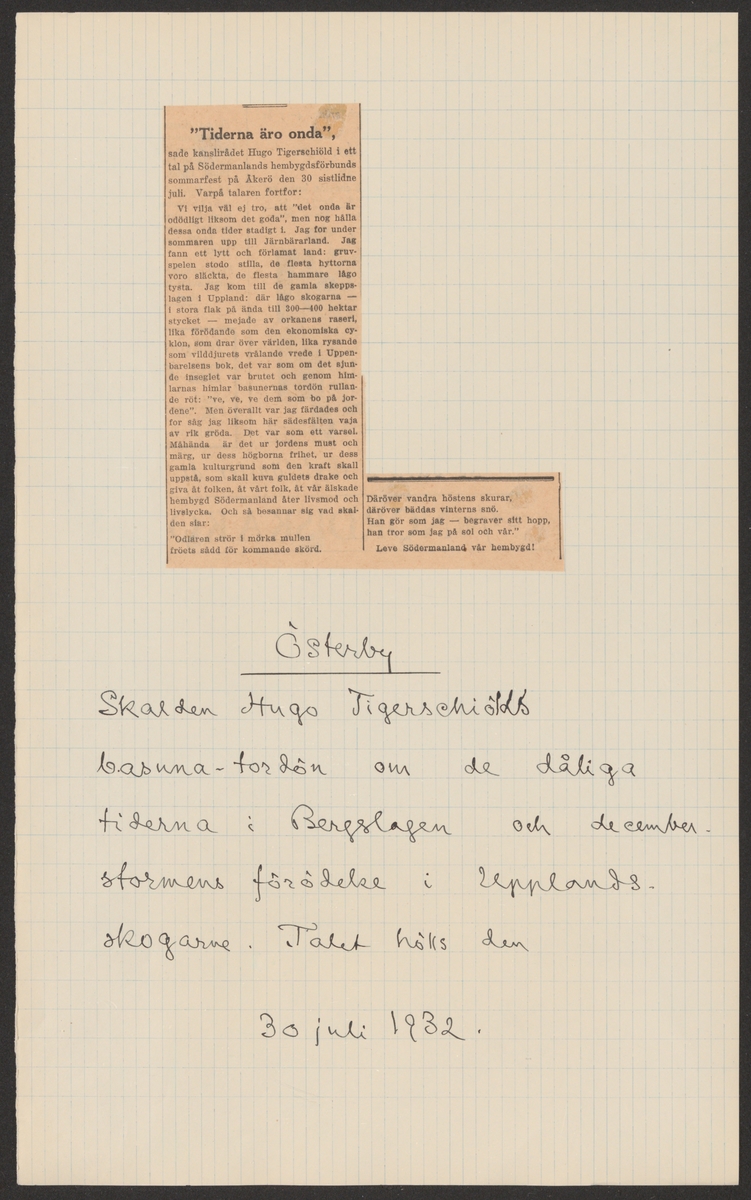 "Tiderna äro onda",
sade kanslirådet Hugo Tigerschiöld i ett
tal på Södermanlands hembygdsförbunds
sommarfest på Åkerö den 30 sistlidne
juli. Varpå talaren fortfor:
Vi vilja väl ej tro, att "det onda är
odödligt liksom det goda", men nog hålla
dessa onda tider stadigt i. Jag for under
sommaren upp till Järnbärarland. Jag
fann ett lytt och förlamat land: gruv-
spelen stodo stilla, de flesta hyttorna
voro släckta, de flesta hammare lågo
tysta. Jag kom till de gamla skepps-
lagen i Uppland: där lågo skogarna —
i stora flak på ända till 300—400 hektar
stycket — mejade av orkanens raseri,
lika förödande som den ekonomiska cy-
klon, som drar över världen, lika rysande
som vilddjurets vrålande vrede i Uppen-
barelsens bok, det var som om det sjun-
de inseglet var brutet och genom him-
larnas himlar basunernas tordön rullan-
de röt: "ve, ve, ve dem som bo på jor-
dene". Men överallt var jag färdades och
for såg jag liksom här sädesfälten vaja
av rik gröda. Det var som ett varsel.
Måhända är det ur jordens must och
märg, ur dess högborna frihet, ur dess
gamla kulturgrund som den kraft skall
uppstå, som skall kuva guldets drake och
giva åt folken, åt vårt folk, åt vår älskade
hembygd Södermanland åter livsmod och
livslycka. Och så besannar sig vad skal-
den siar:
"Odlaren strör i mörka mullen
fröets sådd för kommande skörd.
Däröver vandra höstens skurar,
däröver bäddas vinterns snö.
Han gör som jag — begraver sitt hopp,
han tror som jag på sol och vår."
Leve Södermanland vår hembygd!
Österby
Skalden Hugo Tigerschiölds
basuna-tordön om de dåliga
tiderna i Bergslagen och december-
stormens förödelse i Upplands-
skogarne. Talet hölls den
30 juli 1932.